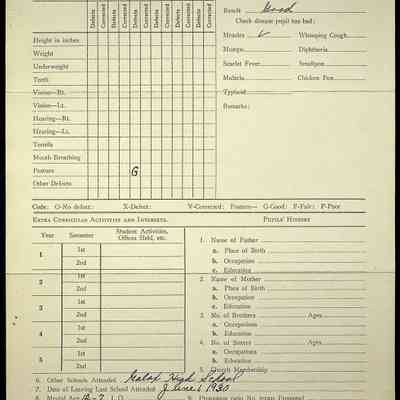 Defects Corrected Defects Corrected Defects Corrected Defects Corrected Defects Corrected Defects Corrected Defects Corrected
Result Good
Check disease pupil has had:
Height in inches
Measles ✓ Whooping Cough
Weight
Mumps Diphtheria
Underweight
Scarlet Fever Smallpox
Teeth
Malaria Chicken Pox
Vision—Rt.
Typhoid
Vision—Lt.
Remarks:
Hearing—Rt.
Hearing—Lt.
Tonsils
Mouth Breathing
Posture G
Other Defects
Code: O-No defect: X-Defect: V-Corrected: Posture— G-Good: F-Fair: P-Poor
Extra Curricular Activities and Interests.
Pupils' History
Year Semester Student Activities, Offices Held, etc.
1 1st
2nd
2 1st
2nd
3 1st
2nd
4 1st
2nd
5 1st
2nd
1. Name of Father
a. Place of Birth
b. Occupation
c. Education
2. Name of Mother
a. Place of Birth
b. Occupation
c. Education
3. No. of Brothers Ages
a. Occupations
b. Education
4. No. of Sisters Ages
a. Occupations
b. Education
5. Church Membership
6. Other Schools Attended Galax High School
7. Date of Leaving Last School Attended June 6 1930
8. Mental Age I. Q.